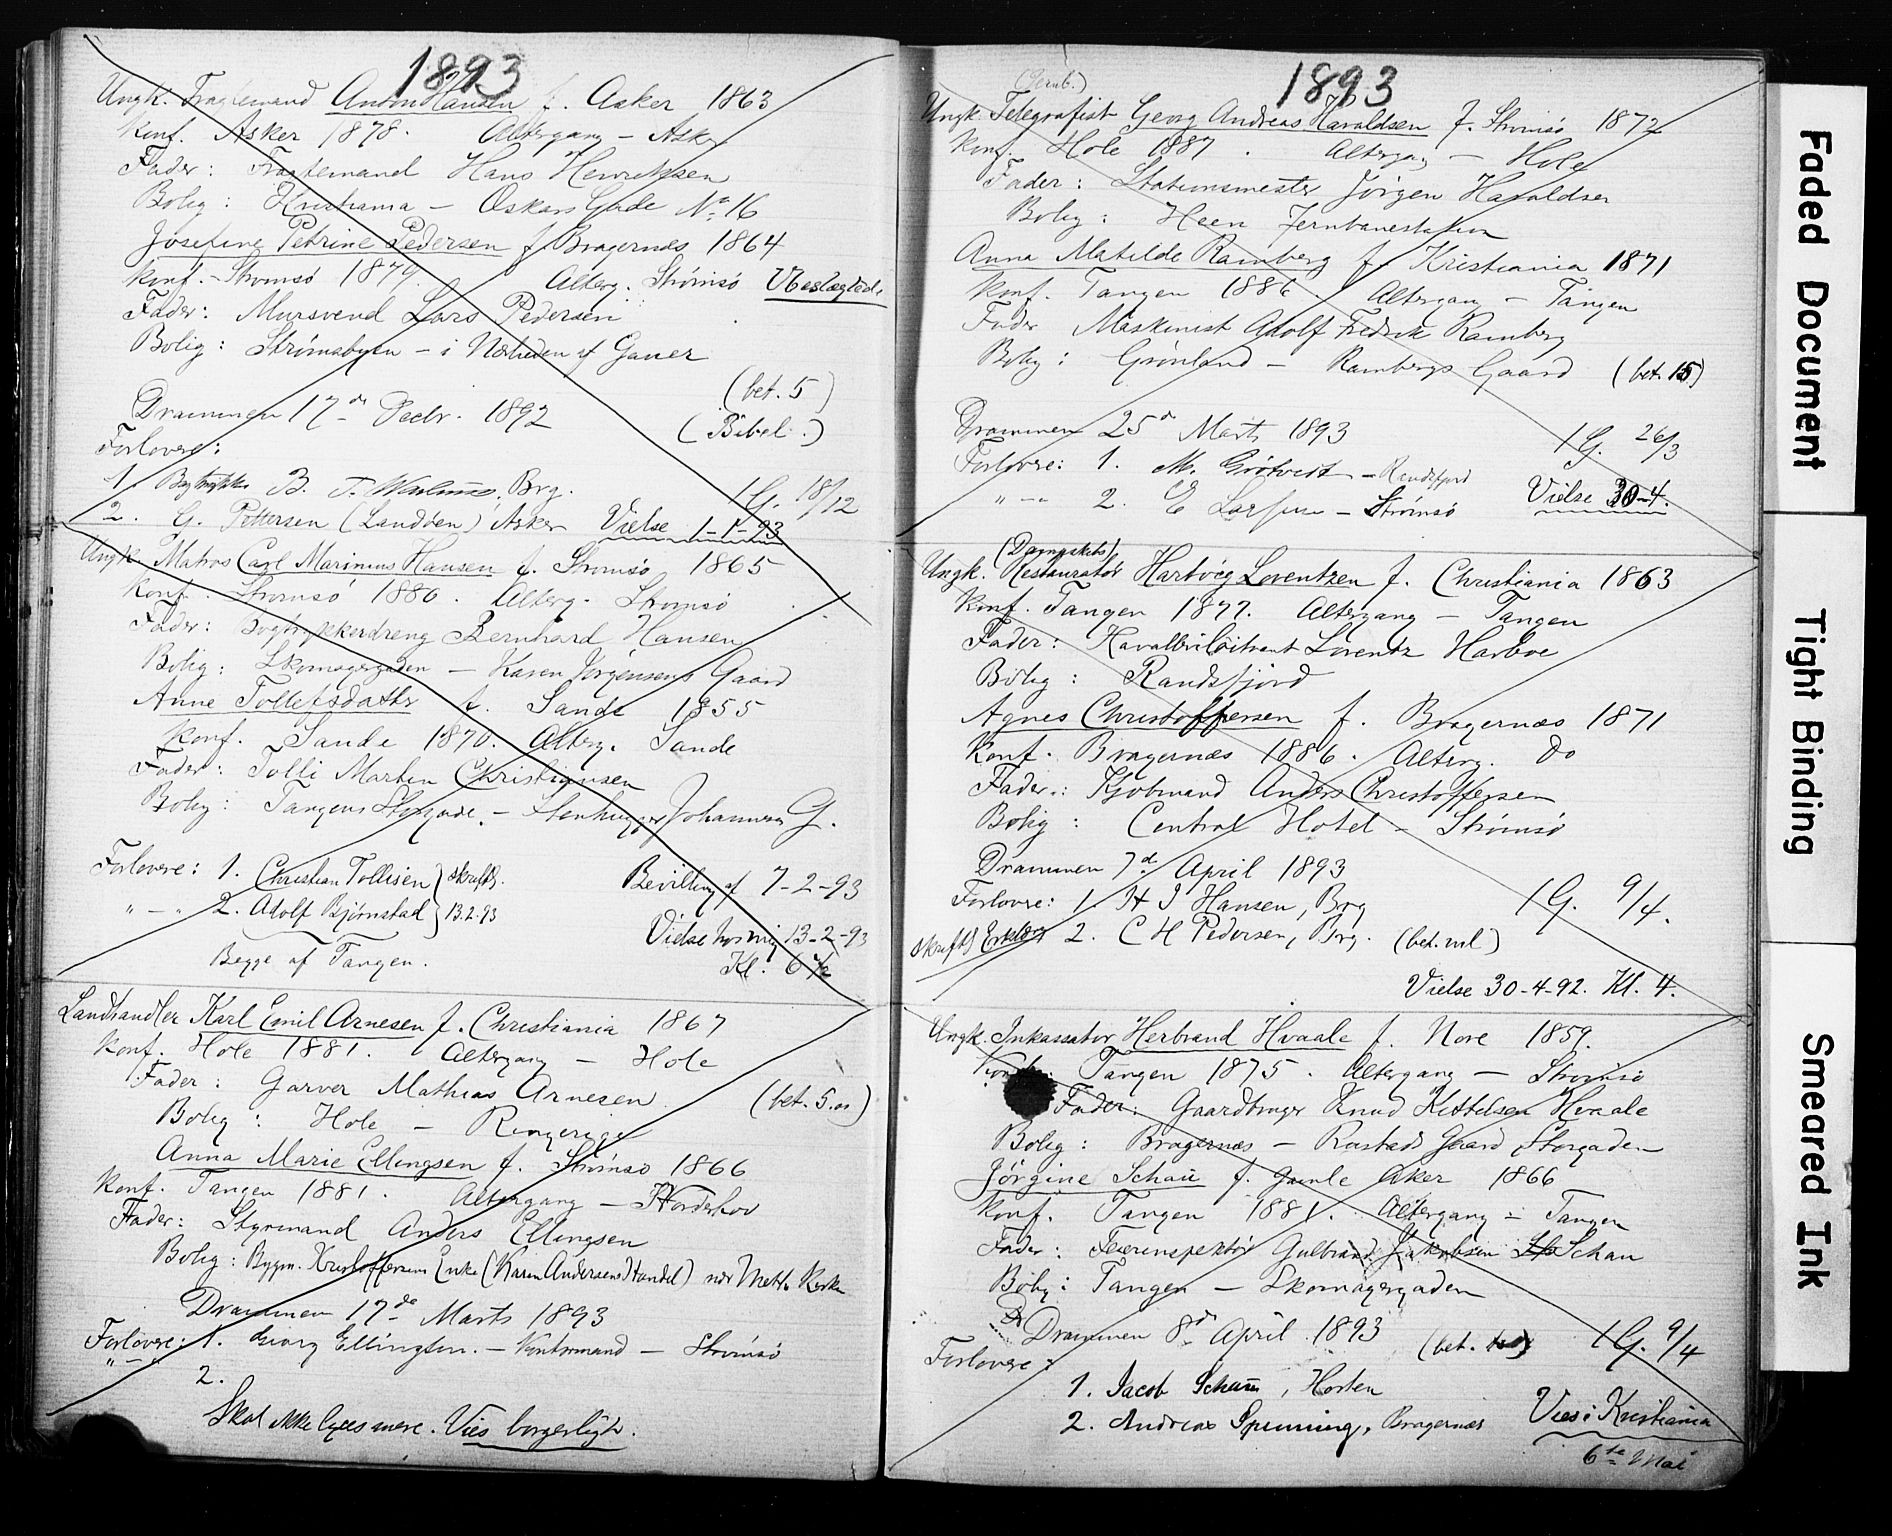 1893
Ungk. Fragtemand Anton Hansen f. Asker 1863
Konf. Asker 1878. Altergang – Asker
Fader: Fragtemand Hans Henriksen
Bolig: Kristiania – Oskars Gade No 16
Josefine Petrine Pedersen f. Bragernæs 1864
Konf. Strømsø 1879. Alterg. Strømsø Ubeslægtede
Fader: Mursvend Lars Pedersen
Bolig: Strømsbyen – i Nærheden af Gauer
(bet. 5)
Drammen 17de Decbr. 1892
(Bibel.)
Forlovere:
1. B. T. Brg.
1 G. 18/12
2. G. Pettersen (Landøen) Asker Vielse 1-1-93
Ungk. Matros Carl Marinius Hansen f. Strømsø 1865
Konf. Strømsø 1880. Alterg. Strømsø
Fader: Bogtrykkerdreng Bernhard Hansen
Bolig: Skomagergaden – Karen Jørgensens Gaard
Anne Tollefsdatter f. Sande 1855
Konf. Sande 1870. Alterg. Sande
Fader: Tolli Marten Christiansen
Bolig: Tangens Storgade. – Stenhugger Johannesens G.
Forlovere: 1. Christian Tollisen } skriftl. Bevilling af 7-2-93
" – " 2. Adolf Bjørnstad } 13.2.93
Vielse hos mig 13-2-93
Begge af Tangen. Kl. 6 1/2
Landhandler Karl Emil Arnesen f. Christiania 1867
Konf. Hole 1881. Altergang – Hole
Fader: Garver Mathias Arnesen
(bet. 5.00)
Bolig: Hole – Ringerige
Anna Marie Ellingsen f. Strømsø 1866
Konf. Tangen 1881. Altergang – Norderhov
Fader: Styrmand Anders Ellingsen
Bolig: Bygm. Kristoffersens Enke (Karen Andersens Handel) nær Meth. Kirke
Drammen 17de Marts 1893
Forlovere: 1. Georg Ellingsen. – Kontormand – Strømsø
" – "
2.
Skal ikke lyses mere. Vies borgerligt.
1893
(Jernb.)
Ungk. Telegrafist Georg Andreas Haraldsen f. Strømsø 1872
Konf. Hole 1887. Altergang – Hole
Fader: Stationsmester Jørgen Haraldsen
Bolig: Heen Jernbanestation
Anna Matilde Ramberg f. Kristiania 1871
Konf. Tangen 1886. Altergang – Tangen
Fader Maskinist Adolf Fredrik Ramberg
Bolig: Grønland – Rambergs Gaard (bet. 15)
Drammen 25de Marts 1893
1 G. 26/3
Forlovere: 1. M. Grøtvedt – Randsfjord
" – " 2. E Larsen – Strømsø Vielse 30-4.
(Dampskibs)
Ungk. Restauratør Hartvig Lorentzen f. Christiania 1863
Konf. Tangen 1877. Altergang – Tangen
Fader: Kavalleriløitnant Lorentz Harboe
Bolig: Randsfjord
Agnes Christoffersen f. Bragernæs 1871
Konf. Bragernæs 1886. Alterg. do
Fader: Kjøbmand Anders Christoffersen
Bolig: Central Hotel – Strømsø
Drammen 7d. April 1893
Forlovere: 1. H J Hansen, Brg 1 G. 9/4.
skriftl Erklæg 2. C H Pedersen, Brg. (bet. ml)
Vielse 30-4-92. Kl. 4.
Ungk. Inkassator Herbrand Hvaale f. Nore 1859.
Konf: Tangen 1875. Altergang – Strømsø
Fader: Gaardbruger Knud Kittelsen Hvaale
Bolig: Bragernæs – Rustads Gaard Storgaden
Jørgine Schau f. Gamle Aker 1866
Konf. Tangen 1881. Altergang – Tangen
Fader: Feierinspektør Gulbrand Jakobsen Schau
Bolig: Tangen – Skomagergaden
Drammen 8de April 1893
(bet. ) 1 G. 9/4
Forlovere:
1. Jacob Schau, Horten
2. Andreas Spenning, Bragernæs
Vies i Kristiania
6te Mai
Faded Document
Tight Binding
Smeared Ink